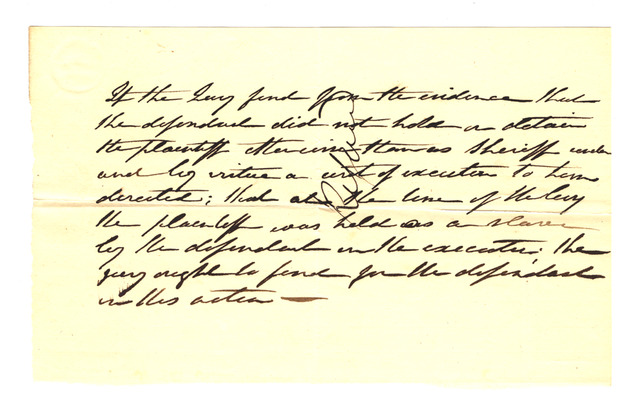 If the Jury find from the evidence that
the defendant did not hold or detain
the plaintiff otherwise than as Sheriff under
and by virtue a writ of execution to him
directed; that at the time of the levy
the plaintiff was held as a slave
by the defendant in the execution; the
jury ought to find for the defendant
in this action —
Refused